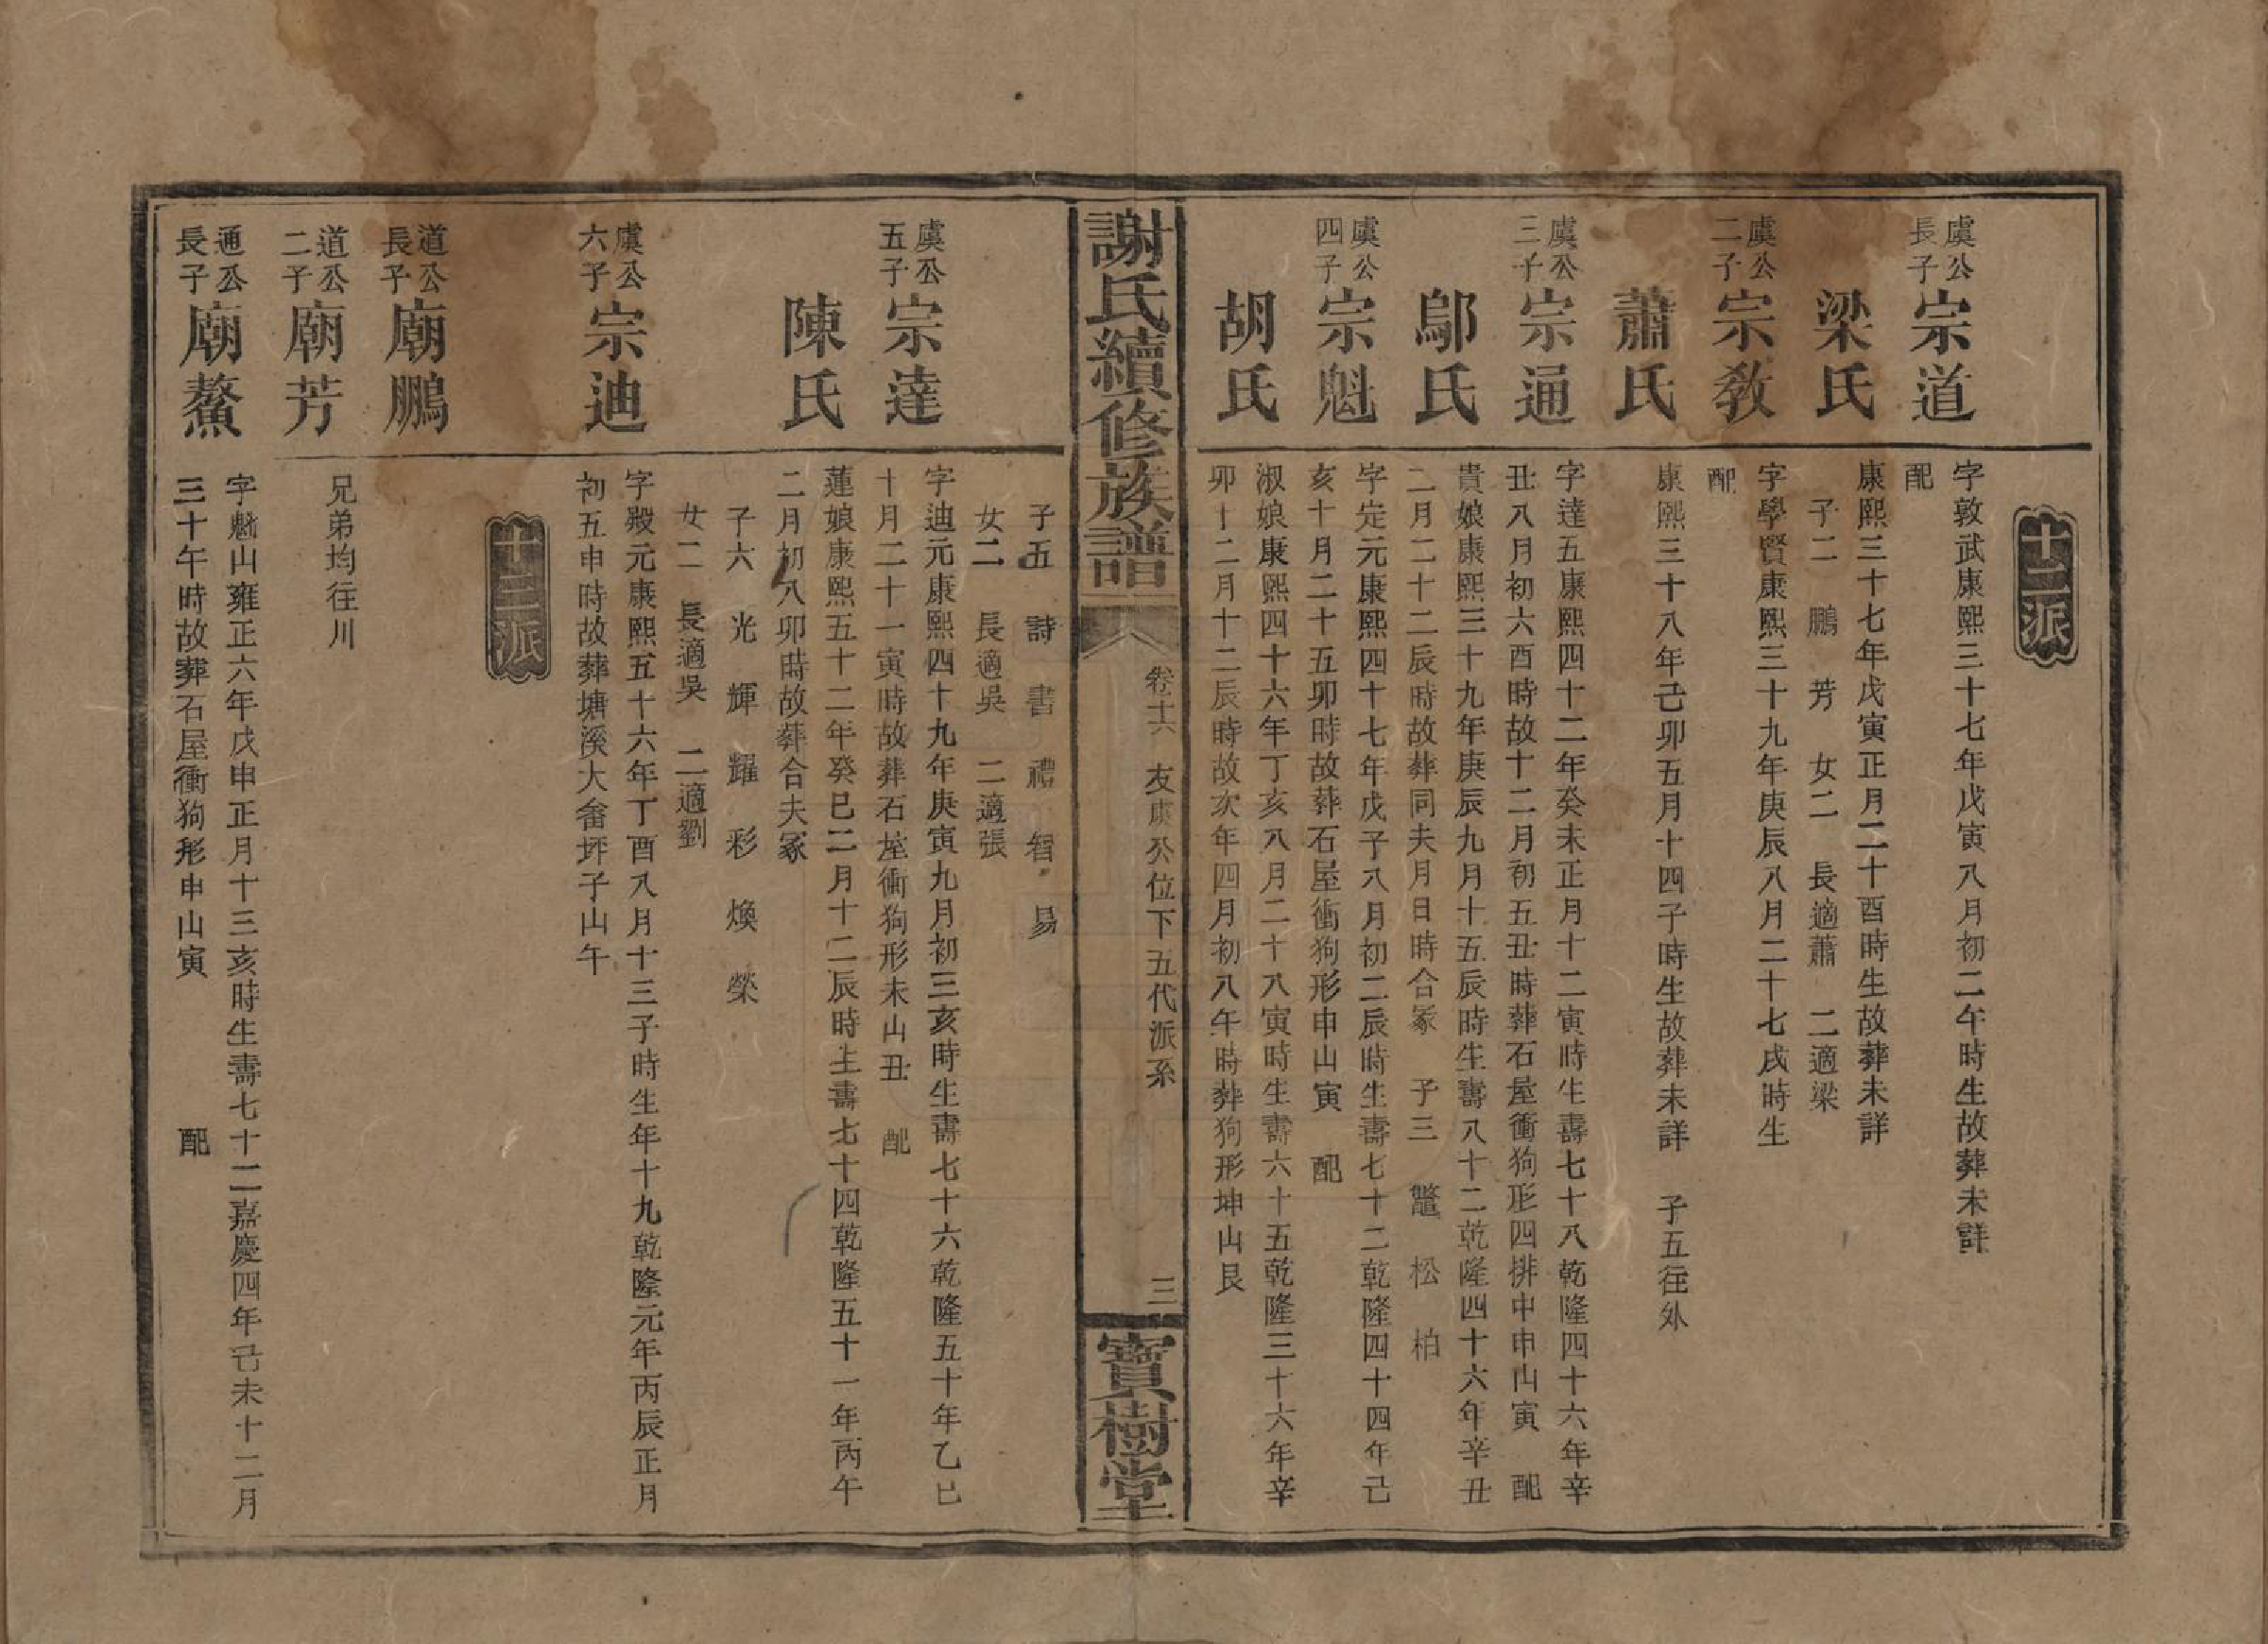 十二派
虞公長子 宗道
字敦武康熙三十七年戊寅八月初二午時生故葬未詳
配
梁氏
康熙三十七年戊寅正月二十酉時生故葬未詳
子二 鵬 芳 女二 長適蕭 二適梁
虞公二子 宗教
字學賢康熙三十九年庚辰八月二十七戌時生
配
蕭氏
康熙三十八年己卯五月十四子時生故葬未詳 子五往外
虞公三子 宗通
字達五康熙四十二年癸未正月十二寅時生壽七十八乾隆四十六年辛
丑八月初六酉時故十二月初五丑時葬石屋衝狗形四排中申山寅 配
鄔氏
貴娘康熙三十九年庚辰九月十五辰時生壽八十二乾隆四十六年辛丑
二月二十二辰時故葬同夫月日時合冢 子三 鼇 松 柏
虞公四子 宗魁
字定元康熙四十七年戊子八月初二辰時生壽七十二乾隆四十四年己
亥十月二十五卯時故葬石屋衝狗形申山寅 配
胡氏
淑娘康熙四十六年丁亥八月二十八寅時生壽六十五乾隆三十六年辛
卯十二月十二辰時故次年四月初八午時葬狗形坤山艮
謝氏續修族譜
卷十六 友庚公位下五代派系
三
寶樹堂
子五 詩 書 禮 智 易
女二 長適吳 二適張
虞公五子 宗達
字迪元康熙四十九年庚寅九月初三亥時生壽七十六乾隆五十年乙巳
十月二十一寅時故葬石屋衝狗形未山丑 配
陳氏
蓮娘康熙五十二年癸巳二月十二辰時生壽七十四乾隆五十一年丙午
二月初八卯時故葬合夫冢
子六 光 輝 耀 彩 煥 榮
女二 長適吳 二適劉
虞公六子 宗迪
字殿元康熙五十六年丁酉八月十三子時生年十九乾隆元年丙辰正月
初五申時故葬塘溪大畬坪子山午
十三派
道公長子 廟鵬
兄弟均往川
道公二子 廟芳
通公長子 廟鰲
字魁山雍正六年戊申正月十三亥時生壽七十二嘉慶四年己未十二月
三十午時故葬石屋衝狗形申山寅 配